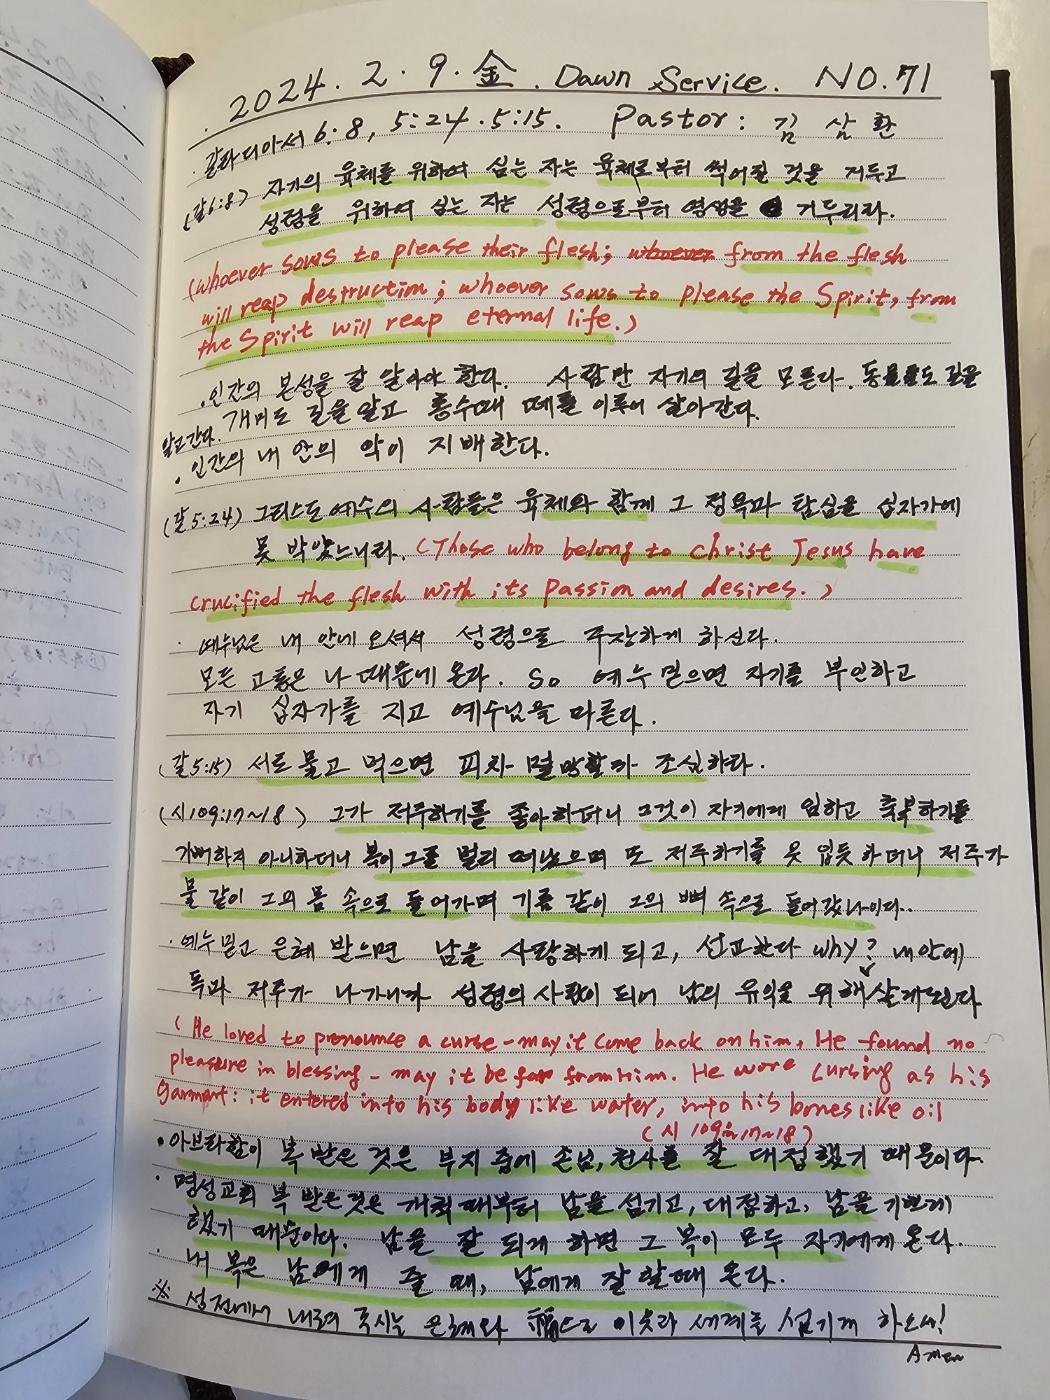 2024. 2. 9. 金. Dawn Service. NO. 71
갈라디아서 6:8, 5:24. 5:15. Pastor: 김 삼 환
(갈6:8) 자기의 육체를 위하여 심는 자는 육체로부터 썩어질 것을 거두고
성령을 위하여 심는 자는 성령으로부터 영생을 거두리라.
(Whoever sows to please their flesh; whoever from the flesh
will reap destruction; whoever sows to please the Spirit, from
the Spirit will reap eternal life.)
. 인간의 본성을 잘 알아야 한다. 사람만 자기의 길을 모른다. 동물들도 길을
알고간다. 개미도 길을 알고 홍수때 떼를 이루어 살아간다.
. 인간의 내 안의 악이 지배한다.
(갈5:24) 그리스도 예수의 사람들은 육체와 함께 그 정욕과 탐심을 십자가에
못 박았느니라. (Those who belong to christ Jesus have
crucified the flesh with its passion and desires.)
· 예수님은 내 안에 오셔서 성령으로 주장하게 하신다.
모든 고통은 나 때문에 온다. So 예수 믿으면 자기를 부인하고
자기 십자가를 지고 예수님을 따른다.
(갈5:15) 서로 물고 먹으면 피차 멸망할까 조심하라.
(시109:17~18) 그가 저주하기를 좋아하더니 그것이 자기에게 임하고 축복하기를
기뻐하지 아니하더니 복이 그를 멀리 떠났으며 또 저주하기를 옷 입듯 하더니 저주가
물 같이 그의 몸 속으로 들어가며 기름 같이 그의 뼈 속으로 들어갔나이다..
· 예수믿고 은혜 받으면 남을 사랑하게 되고, 선교한다 why? 내안에
독과 저주가 나가니까 성령의 사람이 되어 남의 유익을 위해 살게된다
(He loved to pronounce a curse - may it come back on him. He found no
pleasure in blessing - may it be far from him. He wore cursing as his
Garment: it entered into his body like water, into his bones like oil
(시 109:17~18)
· 아브라함이 복 받은 것은 부지 중에 손님, 천사를 잘 대접했기 때문이다.
· 명성교회 복 받은것은 개척때부터 남을 섬기고, 대접하고, 남을 기쁘게
했기 때문이다. 남을 잘 되게 하면 그 복이 모두 자기에게 온다.
· 내 복은 남에게 줄 때, 남에게 잘 할때 온다.
※ 성전에서 내려 주시는 은혜와 福으로 이웃과 세계를 섬기게 하소서!
Amen